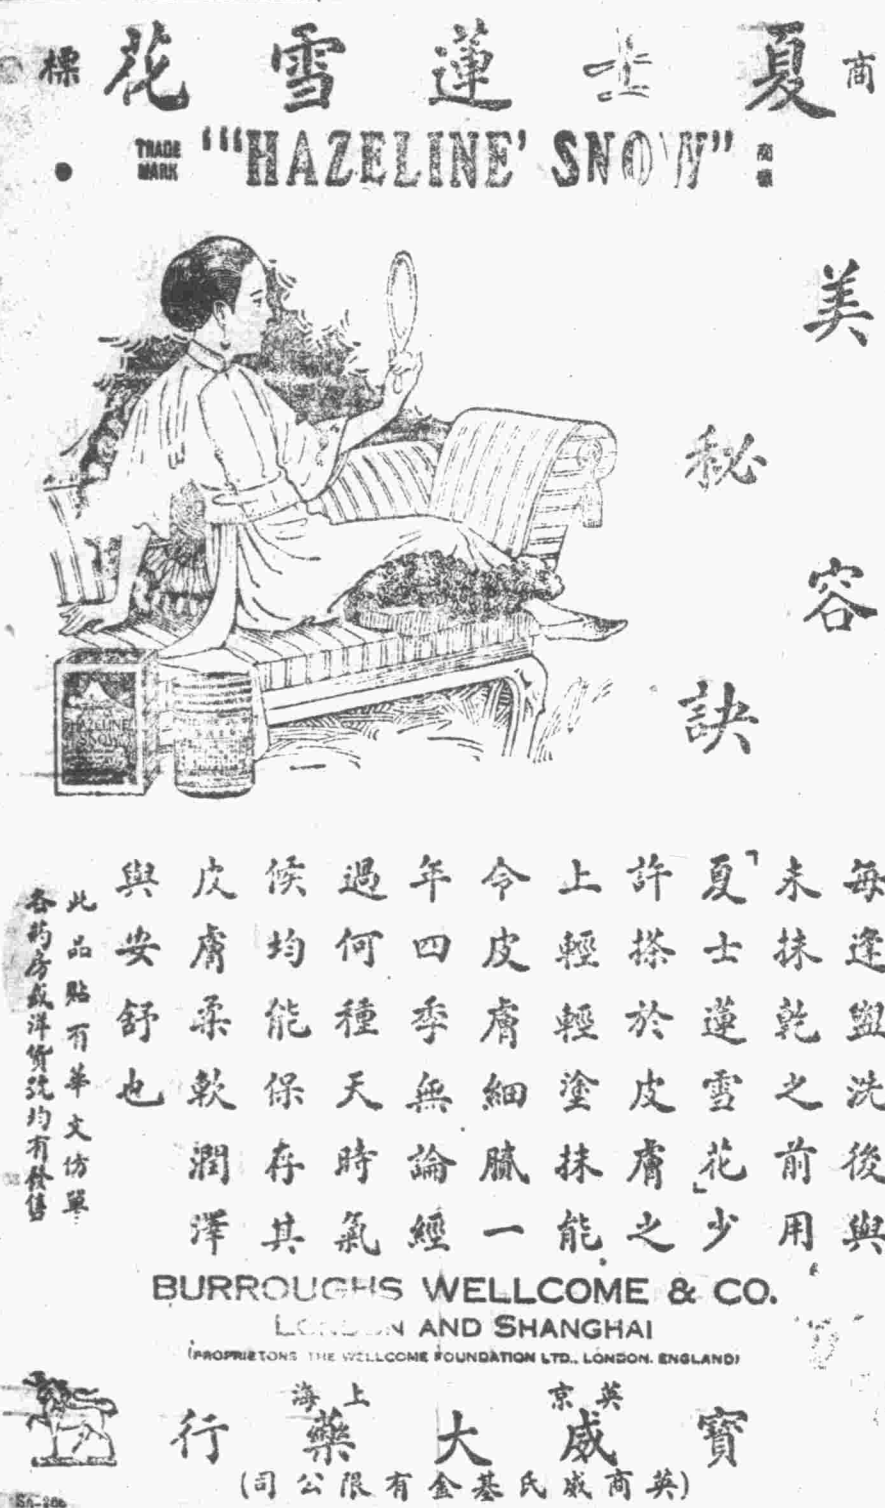 商夏士蓮雪花標
TRADE MARK "'HAZELINE' SNOW" 商標
美容秘訣
HAZELINE SNOW
每逢盥洗後與
未抹乾之前用
「夏士蓮雪花」少
許搽於皮膚之
上輕輕塗抹能
令皮膚細膩一
年四季無論經
過何種天時氣
候均能保存其
皮膚柔軟潤澤
與安舒也
此品貼有華文仿單
各葯房或洋貨號均有發售
BURROUGHS WELLCOME & CO.
LONDON AND SHANGHAI
(PROPRIETORS THE WELLCOME FOUNDATION LTD., LONDON. ENGLAND)
英京 上海
寶威大藥行
(英商威氏基金有限公司)